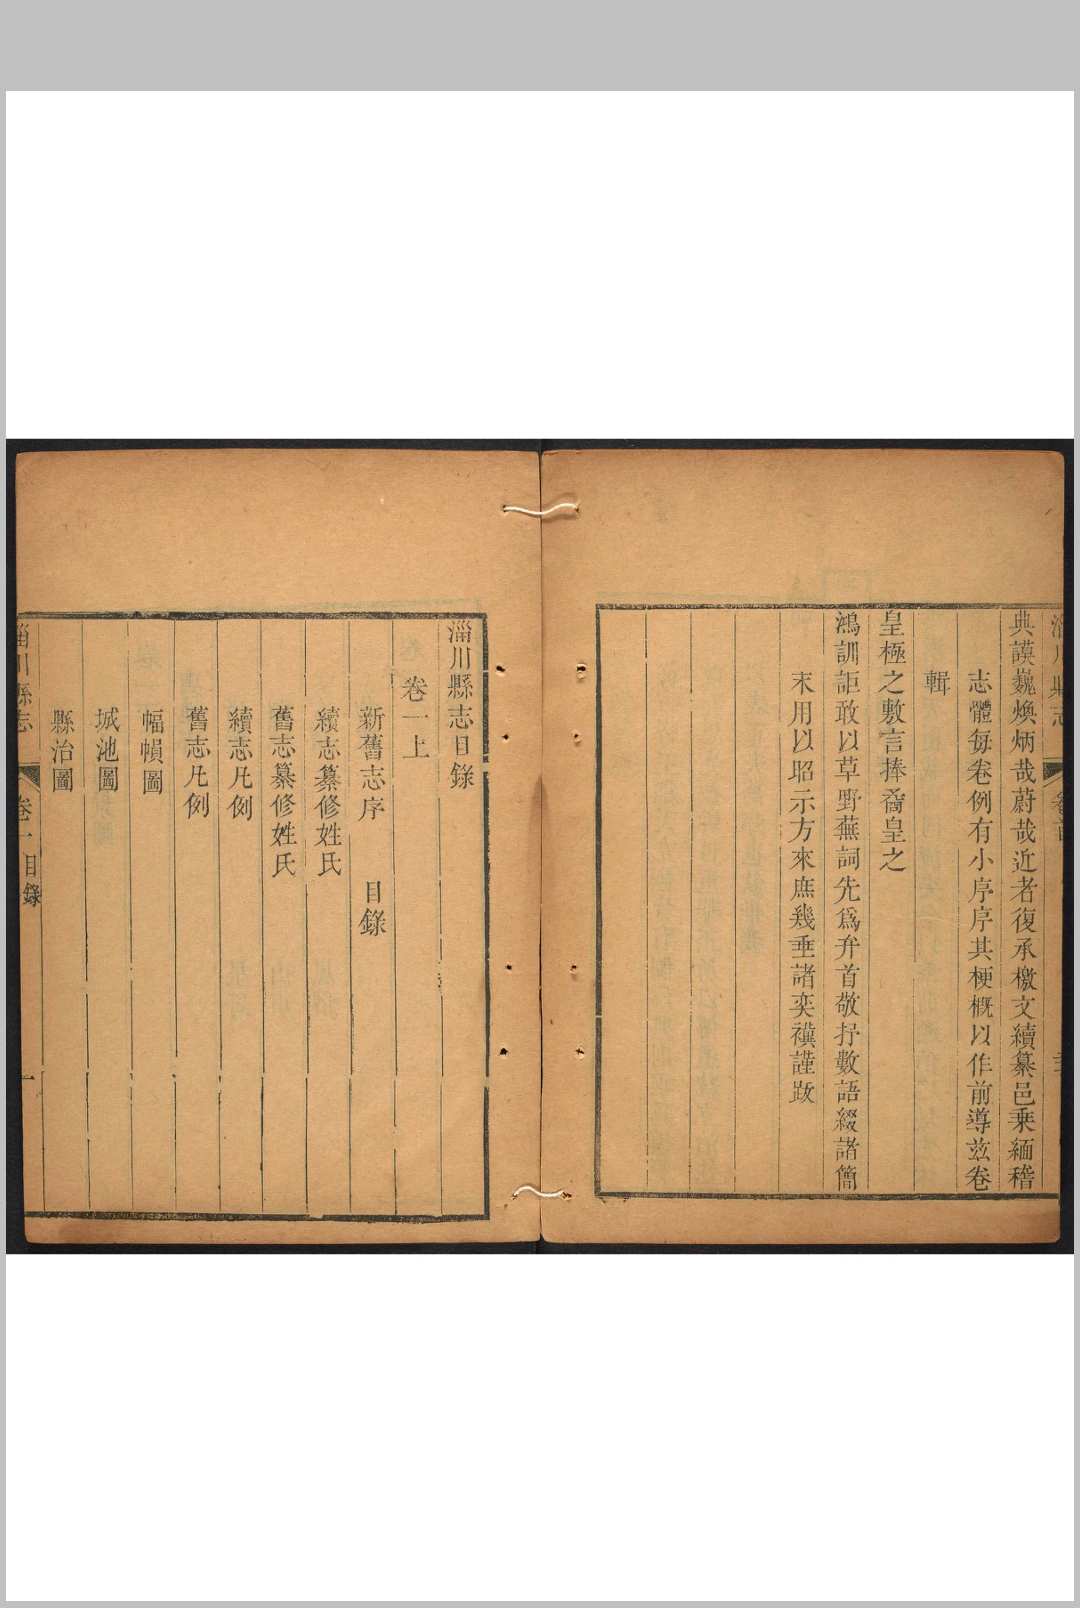 典謨巍煥炳哉蔚哉近者復承檄文續纂邑乘緬稽
志體每卷例有小序序其梗概以作前導茲卷
輯
皇極之敷言捧喬皇之
鴻訓詎敢以草野蕪詞先為弁首敬抒數語綴諸簡
末用以昭示方來庶幾垂諸奕禩謹跋
淄川縣志目錄
卷一上
新舊志序 目錄
續志纂修姓氏
舊志纂修姓氏
續志凡例
舊志凡例
幅幀圖
城池圖
縣治圖
淄川縣志 卷一 目錄 一